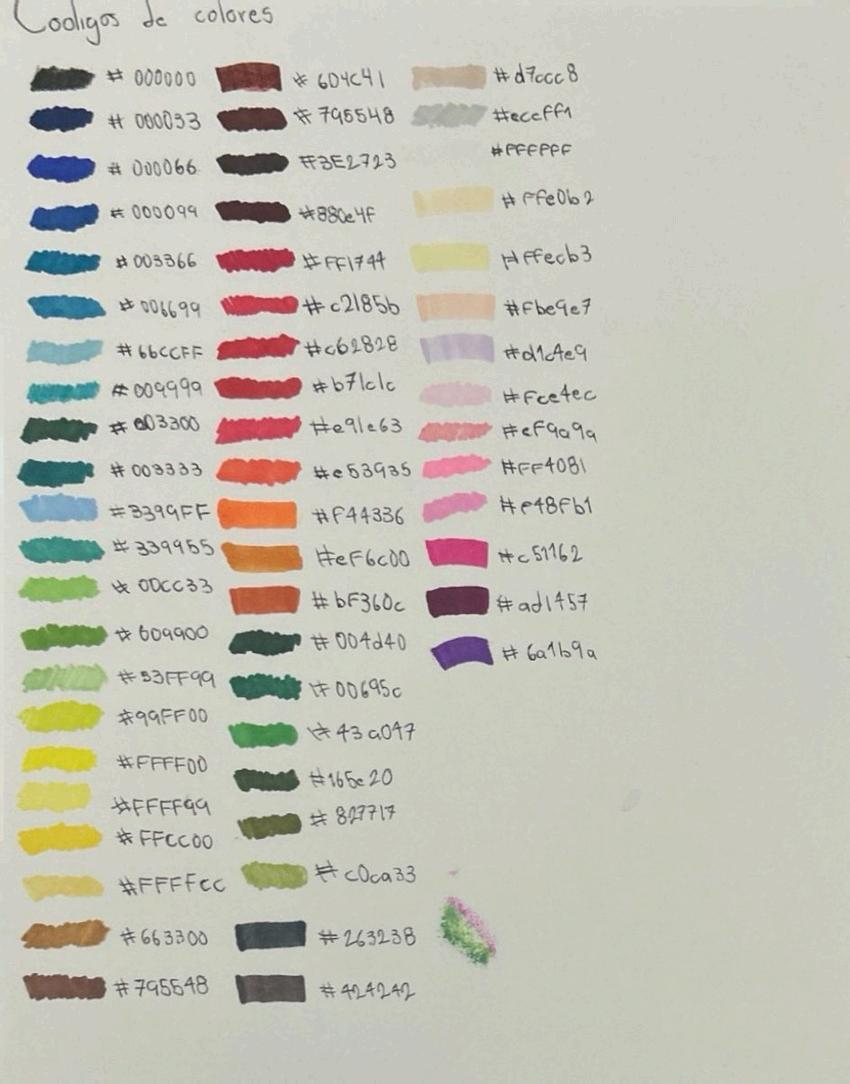 Codigos de colores
# 000000
# 000033
# 000066
# 000099
# 003366
# 006699
# 66CCFF
# 009999
# 003300
# 003333
#3399FF
# 339955
# 00CC33
# 609900
#53FF99
#99FF00
#FFFF00
#FFFF99
#FFCC00
#FFFFCC
#663300
#795548
# 6D4C41
# 795548
#3E2723
#880e4f
#FF1744
#c2185b
#c62828
#b71c1c
#e91e63
#e53935
#F44336
#eF6c00
#bF360c
#004d40
#00695c
#43a047
#165e20
# 827717
#c0ca33
#263238
#424242
#d7ccc8
#eceff1
#FFFFFF
#ffe0b2
#ffecb3
#fbe9e7
#d1c4e9
#fce4ec
#ef9a9a
#FF4081
#f48fb1
#c51162
#ad1457
#6a1b9a